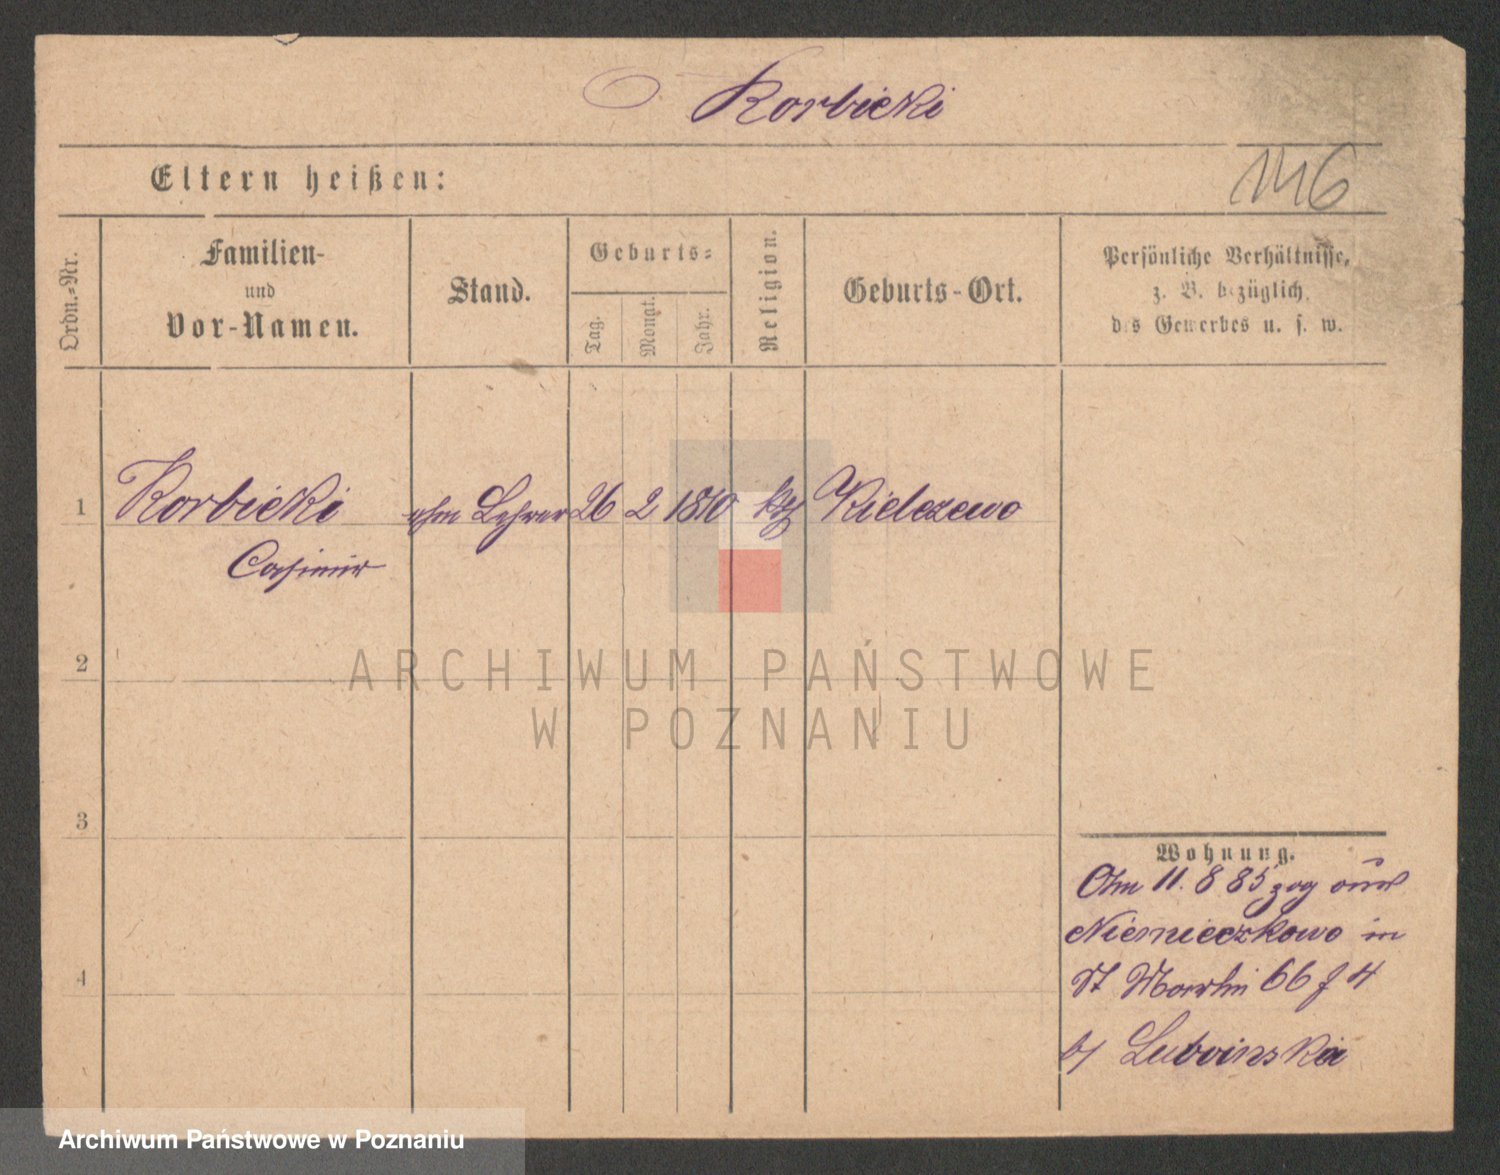 Korbicki
Eltern heißen:
146
Ordn.=Nr.
Familien-
und
Vor-Namen.
Stand.
Geburts=
Tag.
Monat.
Jahr.
Religion.
Geburts-Ort.
Persönliche Verhältnisse,
z. B. bezüglich
des Gewerbes u. s. w.
1 Korbicki ehm Lehrer 26 2 1810 kth Kielczewo
Casimir
2
ARCHIWUM PAŃSTWOWE
W POZNANIU
3
Wohnung.
Am 11. 8 85 zog aus
Niemieczkowo in
St Martin 66 f 4
b/ Lubvinska
4
Archiwum Państwowe w Poznaniu